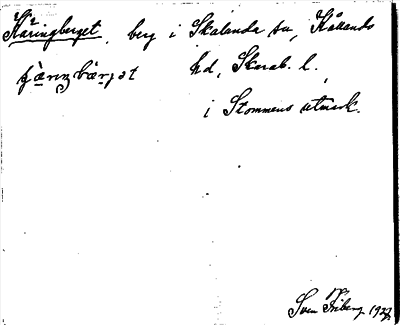 Käringberget, berg i Skalunda sn, Kållands
hd, Skarab. l.
i Stommens utmark.
Sven Friberg 1927.